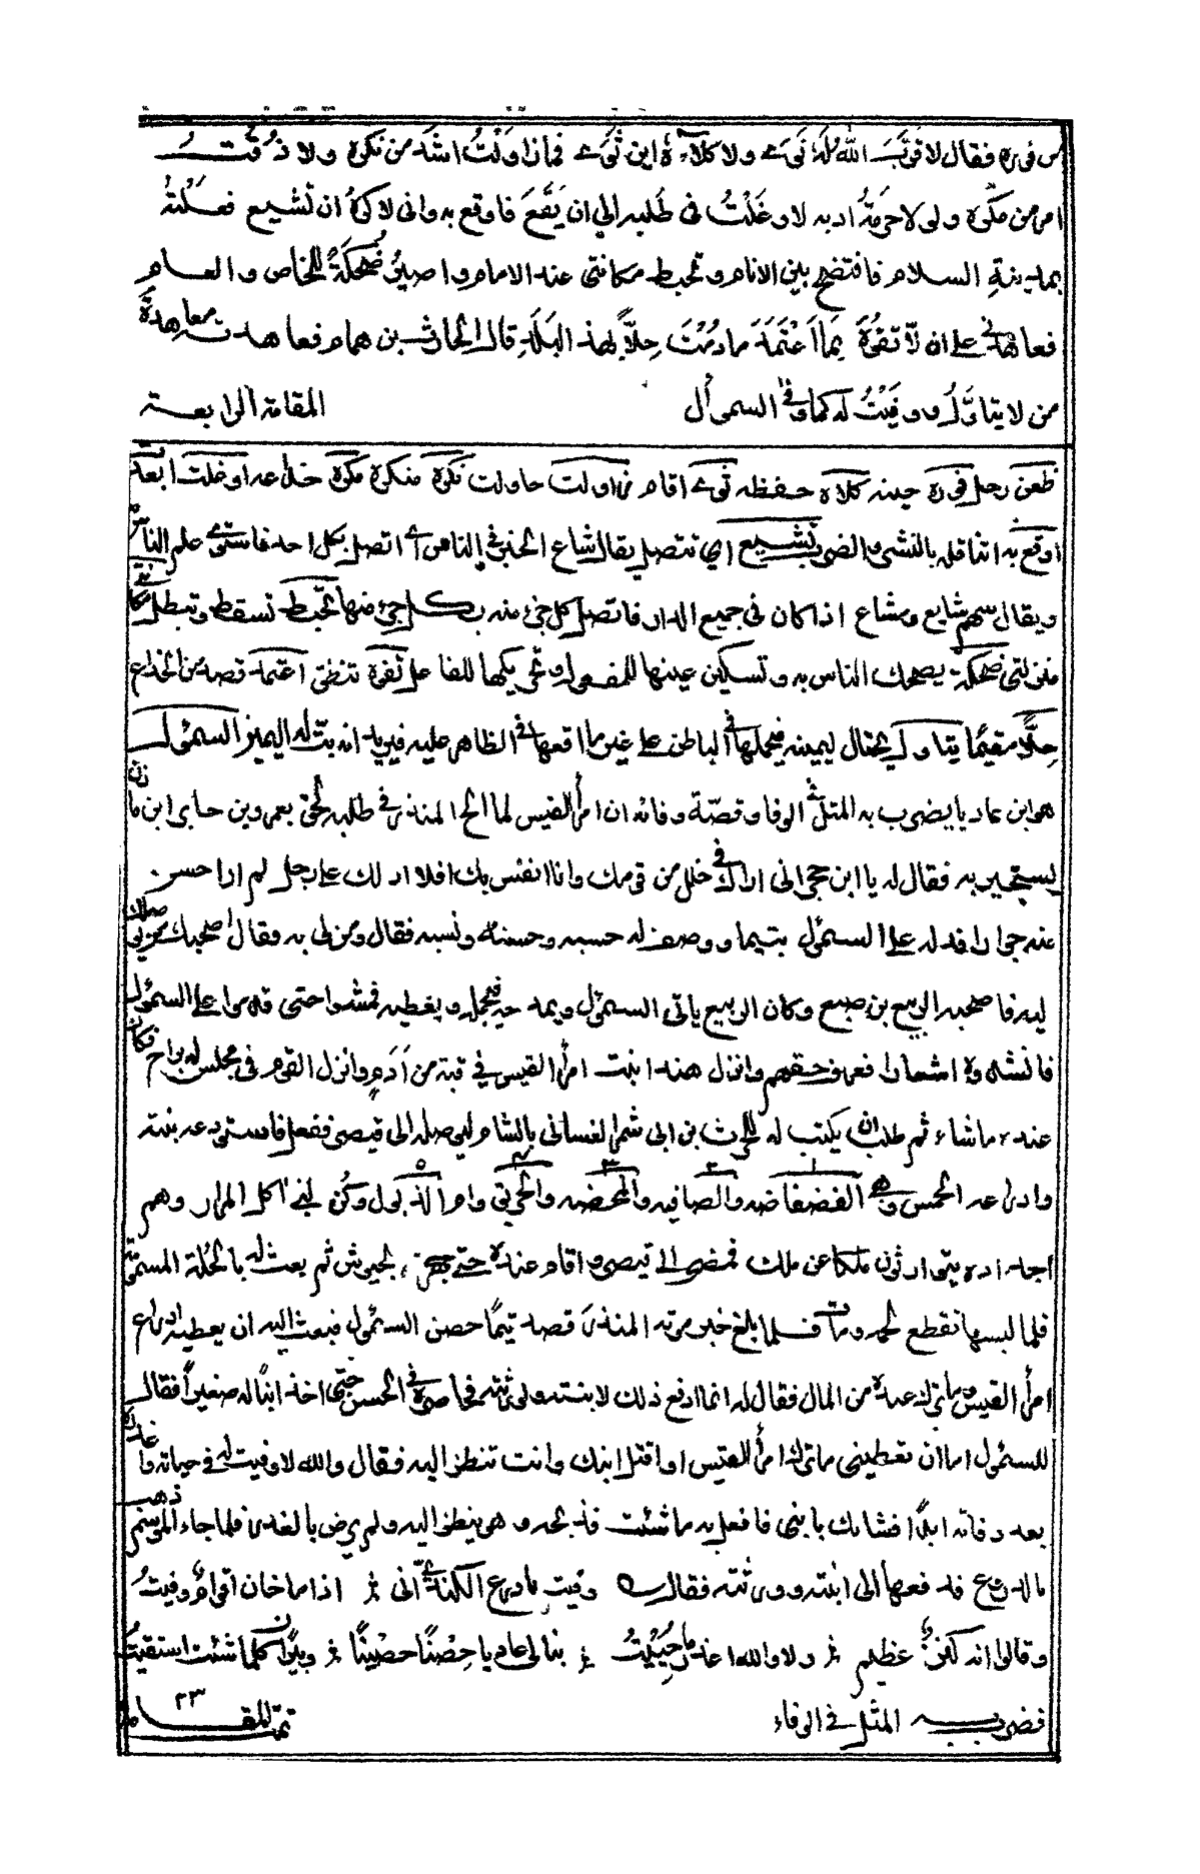 من فوره فقال لا قرّب الله له ثوى ولا كلأه اين ثوى فما زاولت اشد من نكره ولا ذقت
امر من مكره ولولا حرمة ادبه لاوغلت في طلبه الي ان يقع فاوقع به واني لاكره ان تشيع فعلته
بمدينة السلام فافتضح بين الانام وتحبط مكانتي عند الامام واصير ضحكة للخاص والعام
فعاهدني على ان لا تفوه بما اعتمد ما دمت حلاً بهذ البلد قال الحارث بن همام فعاهدته معاهدة
من لا يتاوّل ووفيت له كما وفى السموأل المقامة الرابعة
ظعن رحل فوره حينه كلاه حفظه ثوى اقام زاولت حاولت نكره منكره مكره خداعه اوغلت ابعد
اوقع به اتناقله بالنشى والضرب تشيع اي تتصل يقال شاع الخبر في الناس اى اتصل بكل احد فاستوى علم الناس
ويقال سهم شايع ومشاع اذا كان في جميع الدار فاتصل كل جزء منه بكل جزء منها تحبط تسقط وتبطل مكانتي
منزلتي ضحكة يضحك الناس به وتسكين عينها للمفعول وتحريكها للفاعل تفوه تنطق اعتمد قصد من الخداع
حلاًّ مقيمًا يتاول يحتال ليمينه فيحملها في الباطن على غير ما اقعها في الظاهر عليه فيريد انه بتّ له اليمين السموأل
هو ابن عاديا يضرب به المثل في الوفا وقصّة وفائه ان امرأ القيس لما الح المنذر في طلبه لحق بعمرو بن جابر ابن مازن
ليستجير به فقال له يا ابن حجر انى اراك في خلل من قومك وانا انفس بك افلا ادلك على رجل لم ار احسن
عنه جوارا فدله على السموأل بتيما ووصف له حسبه وحصنه ونسبه فقال ومن لي به وقال اصحبك من يوصلك
اليه فاصحبه الربيع بن ضبع وكان الربيع ياتى السموأل ويمدحه فيحمله ويعطيه فمشوا حتى قدموا على السموأل
فانشدوه اشعارا فعرف حقهم وانزل هند ابنت امرأ القيس في قبة من آدم وانزل القوم في مجلس له براح فكان
عنده ما شاء ثم طلب ان يكتب له للحرث بن ابي شمر الغساني بالشام ليوصله الى قيصر ففعل فاستودعه بنته
وادراعه الخمس وهي الفضفاضه والصافيه والمحضه والخريق وام الذيول وكن لبني آكل المرار وهم
اجداده يتوارثون ملكا عن ملك فمضى الى قيصر واقام عنده حتى جهزه بجيوش ثم بعث له بالحلة المسمّة
فلما لبسها تقطع لحمه ومات فلما بلغ خبر موته المنذر قصد تيمًا حصن السموأل فبعث اليه ان يعطيه ادراع
امرأ القيس وما ترك عنده من المال فقال له انما ادفع ذلك لابنته ولورثته فحاصره في الحصن حتى اخذ ابنًا له صغيراً فقال
للسموأل اما ان تعطيني ما ترك امرأ القيس او اقتل ابنك وانت تنظر اليه فقال والله لاوفيت له في حياته واغدره
بعد وفاته ابدًا فشانك بابني فافعل به ما شئت فذبحه وهو ينظر اليه ولم يرض بالغدر فلما جاء الموسم ذهب
بالدروع فدفعها الى ابنته وورثته فقال وفيت بادرع الكندى انى اذا ما خان اقوام وفيتُ
وقالوا انه كنز عظيم ولا والله اغدر ما حييتُ بنا لى عاديا حصنًا حصينًا وبيرًا كلما شئت استقيت
فضرب به المثل في الوفاء تمت المقامة ٢٣